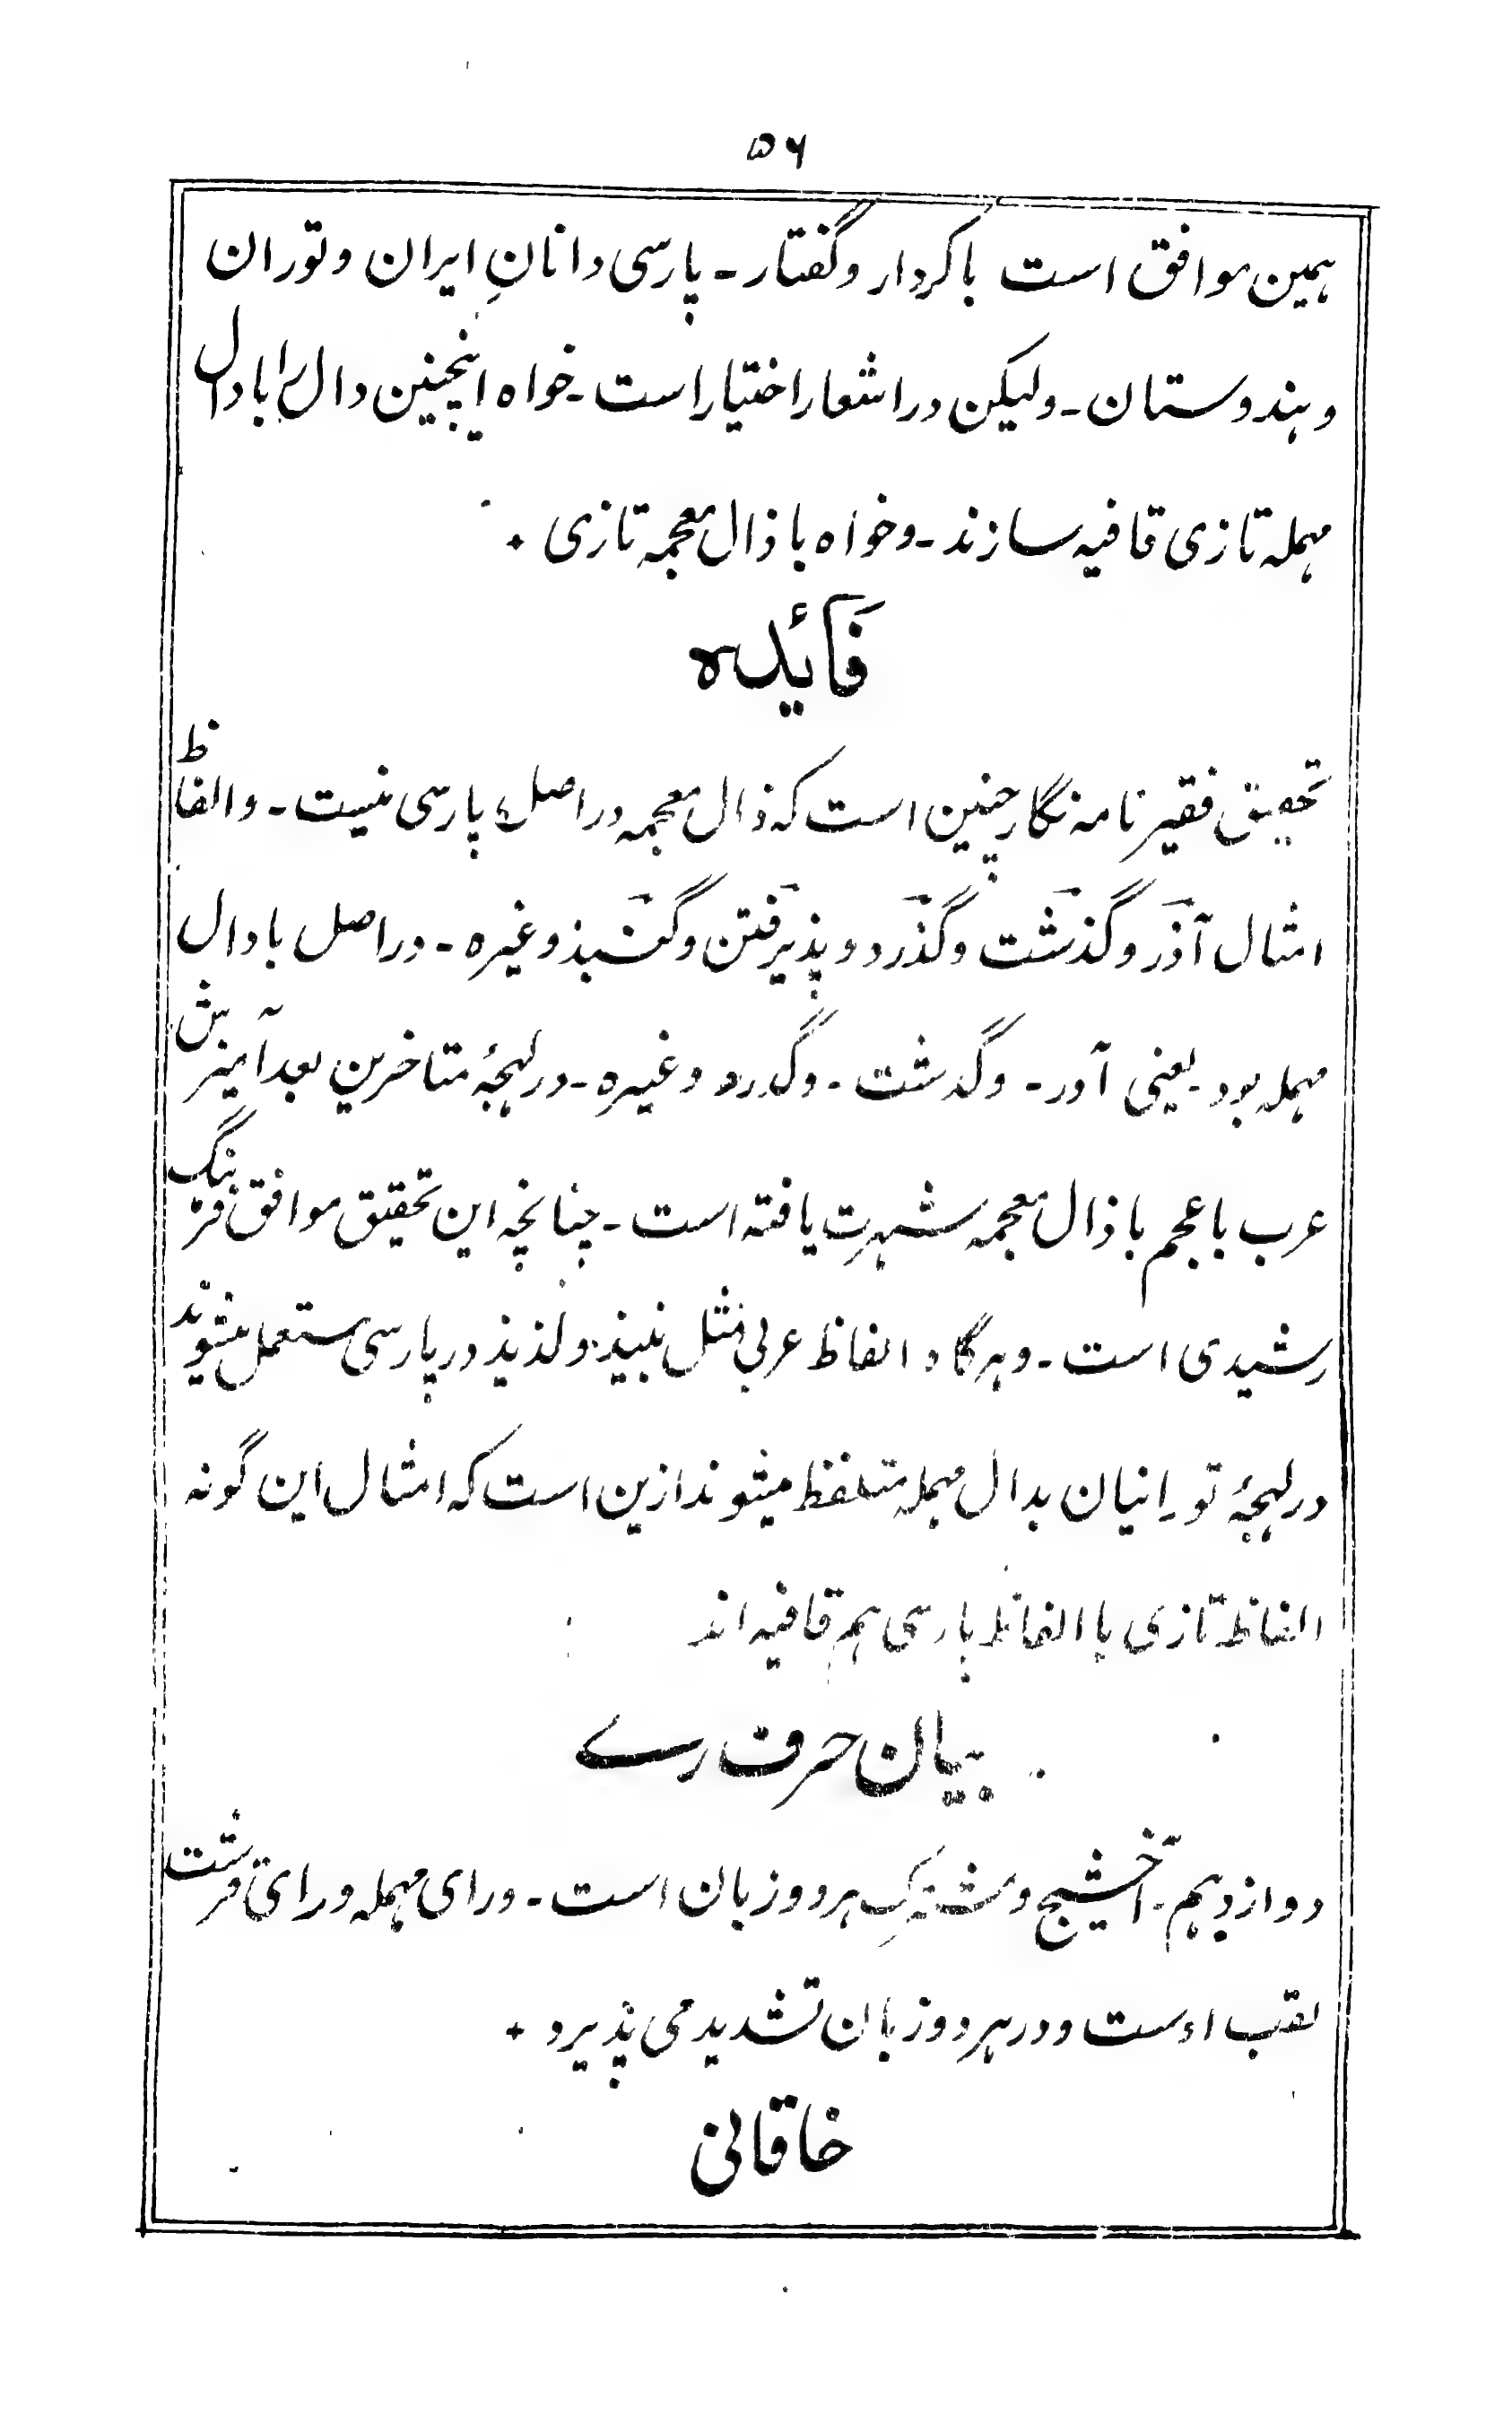 ۵۶
ہمین موافق است باکردار وگفتار ـ پارسی دانانِ ایران و توران
و ہندوستان ـ ولیکن در اشعار اختیار است ـ خواہ اینچنین دال را بادال
مہملہ تازی قافیہ سازند ـ وخواہ با ذال معجمہ تازی ٭
فَائِدہ
تحقیق فقیر نامہ نگار چنین است کہ ذال معجمہ در اصل پارسی نیست ـ و الفاظ
امثال آذَر و گذشت و گذَرد و پذیرَفتن و گنبذ وغیرہ ـ در اصل با دال
مہملہ بود ـ یعنی آدر ـ و گدشت ـ و گدرد وغیرہ ـ در لہجۂ متاخرین بعد آمیزش
عرب با عجم با ذال معجمہ شہرت یافتہ است ـ چنانچہ این تحقیق موافق فرہنگ
رشیدی است ـ وہرگاہ الفاظ عربی مثل نبیذ و لذیذ در پارسی مستعمل میشوند
در لہجۂ تورانیان بدال مہملہ متلفظ میشوند ازین است کہ امثال این گونہ
الفاظ تازی با الفاظ پارسی ہم قافیہ اند
بیان حرف رے
دوازدہم ـ آخشیج و مشترکِ ہر دو زبان است ـ و رای مہملہ و رای قرشت
لقب اوست و در ہر دو زبان تشدید می پذیرد ٭
خاقانی